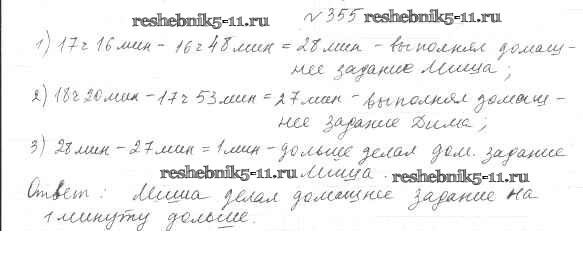 reshebnik5-11.ru №355 reshebnik5-11.ru
1) 17ч 16мин - 16ч 48мин = 28мин - выполнял домаш-
нее задание Миша;
2) 18ч 20мин - 17ч 53мин = 27мин - выполнял домаш-
нее задание Дима;
3) 28мин - 27мин = 1мин - дольше делал дом. задание
reshebnik5-11.ru Миша. reshebnik5-11.ru
Ответ: Миша делал домашнее задание на
1 минуту дольше.